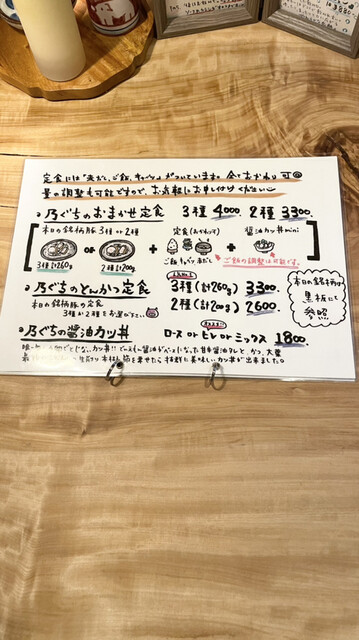 定食には「赤だし、ご飯、キャベツ」がついています。全ておかわり可
量の調整も可能ですので、お気軽にお申し付けください
乃ぐちのおまかせ定食 3種 4000. 2種 3300.
本日の銘柄豚 3種 or 2種 定食(おかわり可) 醤油カツ丼mini
or + +
3種計260g 2種計200g ご飯 キャベツ 赤だし ご飯の調整は可能です。
乃ぐちのとんかつ定食 3種(計260g) 3300.
本日の銘柄豚の定食 2種(計200g) 2600
3種か2種をお選び下さい
本日の銘柄は
黒板にて
参照
乃ぐちの醤油カツ丼 ロース or ヒレ or ミックス 1800.
とじない、カツ丼!!
甘辛醤油タレと、かつ、大葉
を乗せたら抜群に美味しいカツ丼が出来ました。